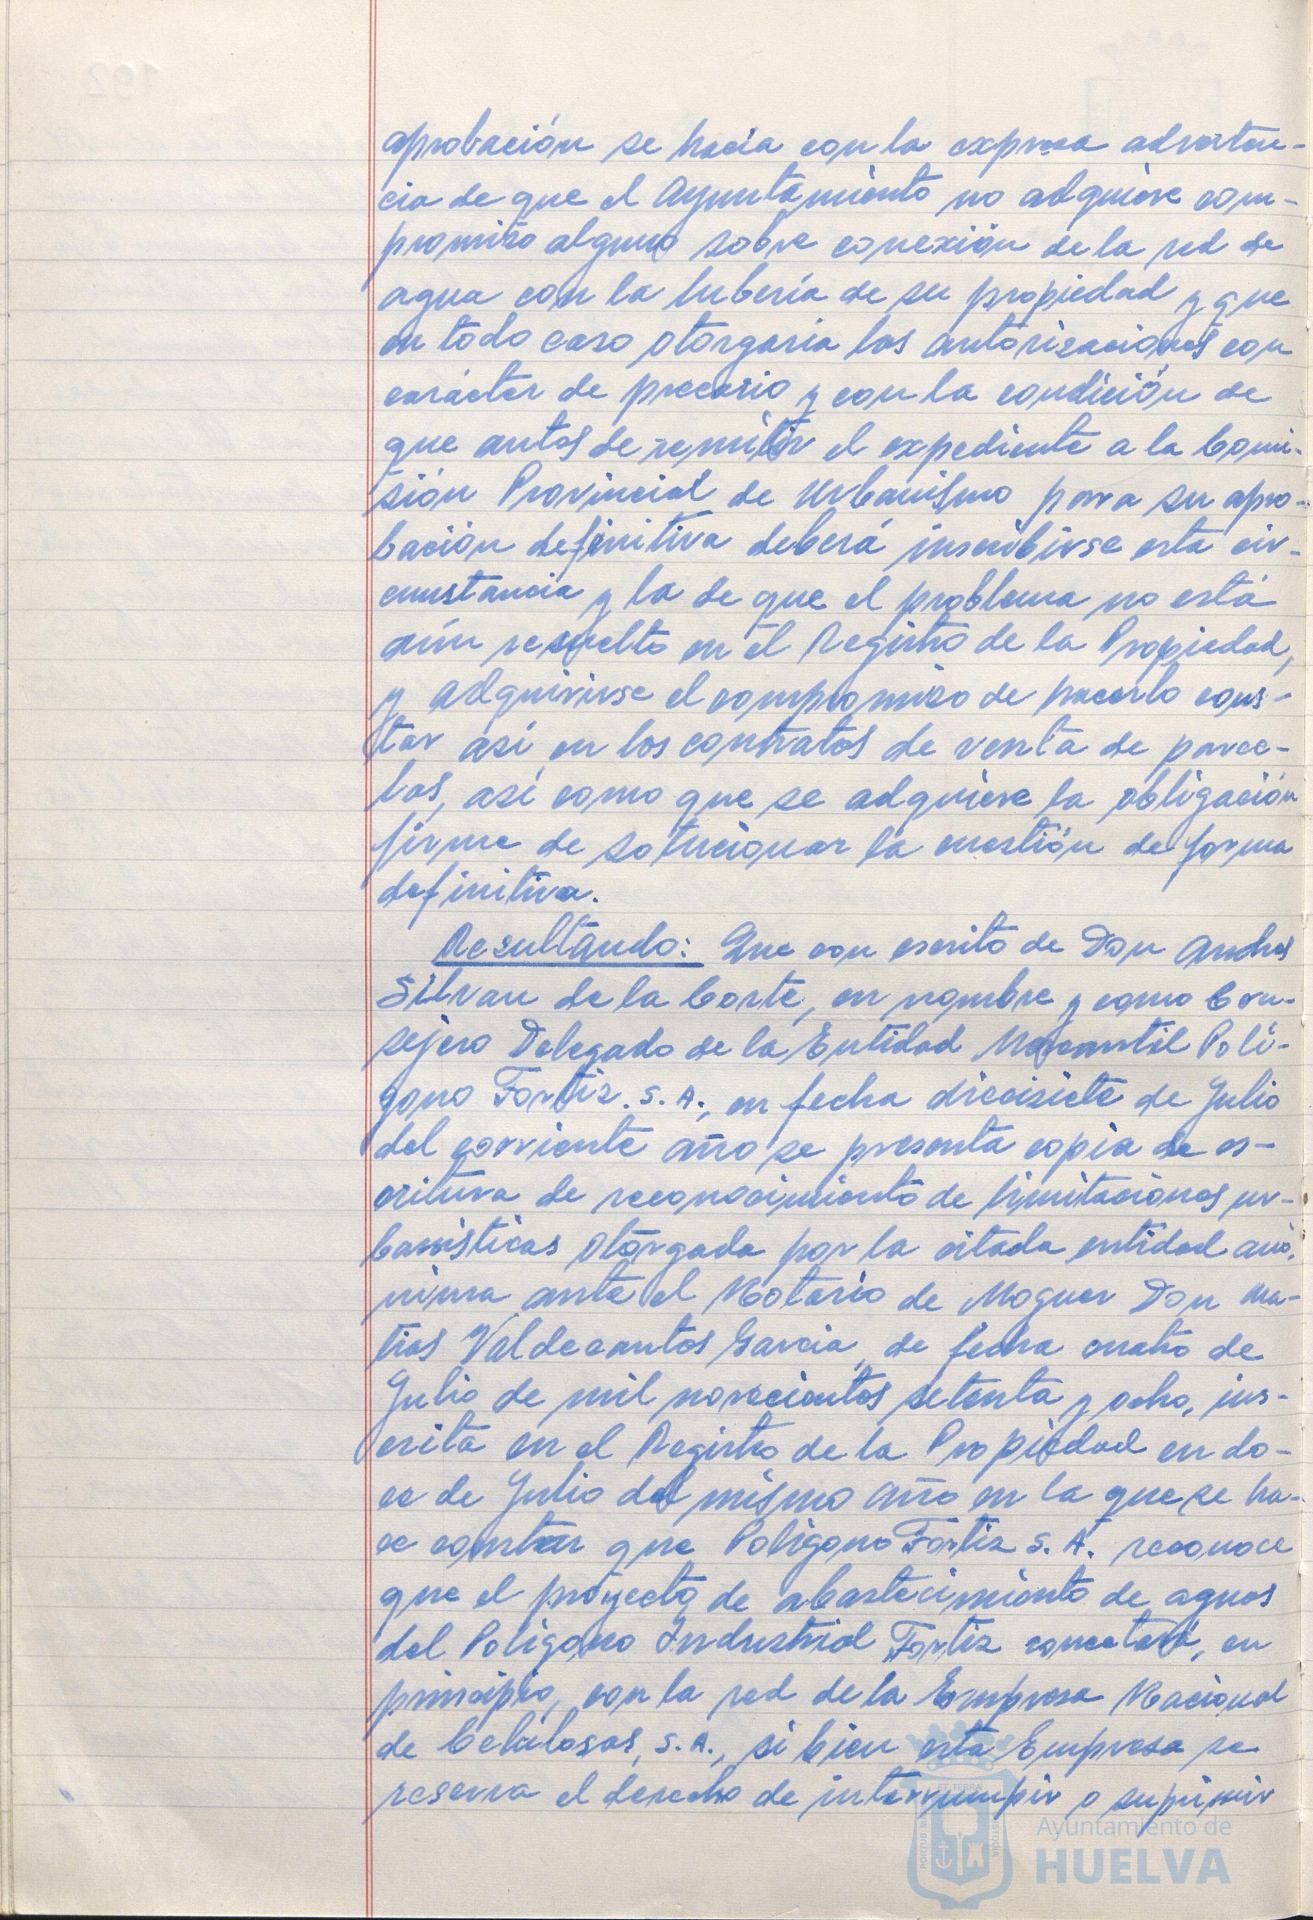 aprobación se hacia con la expresa adverten-
cia de que el Ayuntamiento no adquiere com-
promiso alguno sobre conexión de la red de
agua con la tubería de su propiedad y que
en todo caso otorgaria las autorizaciones con
carácter de precario y con la condición de
que antes de remitir el expediente a la Comi-
sión Provincial de Urbanismo para su apro-
bación definitiva deberá inscribirse esta cir-
cunstancia y la de que el problema no está
aún resuelto en el Registro de la Propiedad,
y adquirirse el compromiso de hacerlo cons-
tar así en los contratos de venta de parce-
las, así como que se adquiere la obligación
firme de solucionar la cuestión de forma
definitiva.
Resultando: Que con escrito de Don Andres
Silvan de la Corte, en nombre y como Con-
sejero Delegado de la Entidad Mercantil Polí-
gono Fortiz. S. A., en fecha diecisiete de Julio
del corriente año se presenta copia de es-
critura de reconocimiento de limitaciones ur-
banísticas otorgada por la citada entidad anó-
nima ante el Notario de Moguer Don Ma-
tias Valdecantos Garcia, de fecha cuatro de
Julio de mil novecientos setenta y ocho, ins-
crita en el Registro de la Propiedad en do-
ce de Julio del mismo año en la que se ha-
ce constar que Poligono Fortiz S. A. reconoce
que el proyecto de abastecimiento de aguas
del Poligono Industrial Fortiz conectará, en
principio, con la red de la Empresa Nacional
de Celulosas, S.A., si bien esta Empresa se
reserva el derecho de interrumpir o suprimir
Ayuntamiento de
HUELVA